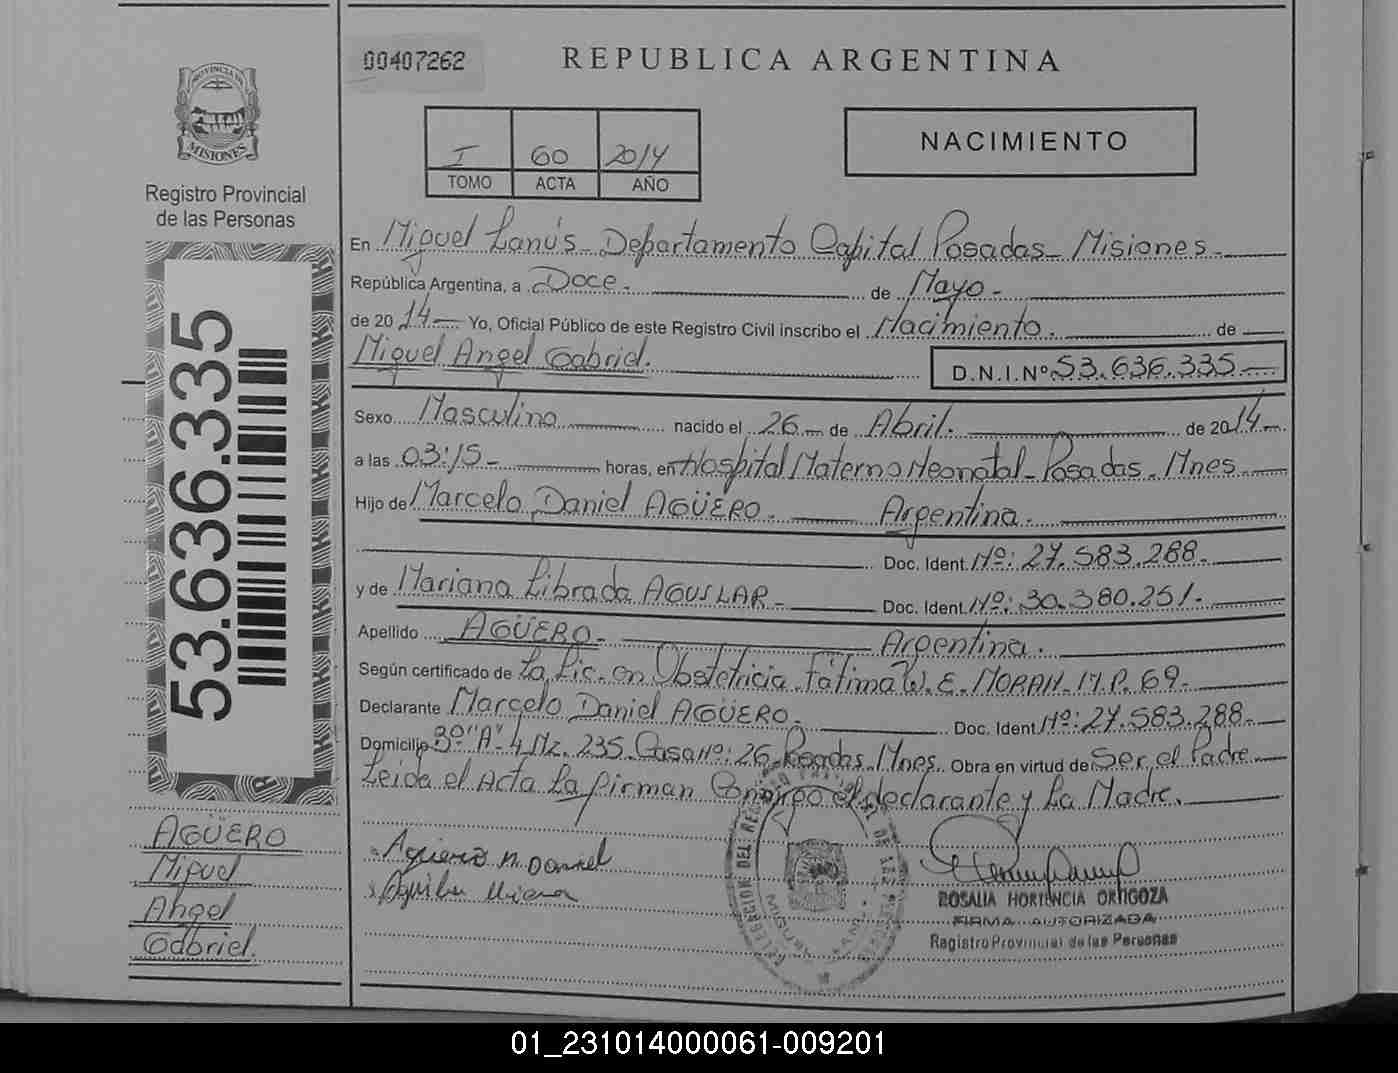 00407262
REPUBLICA ARGENTINA
PROVINCIA DE
MISIONES
Registro Provincial
de las Personas
53.636.335
I 60 2014
TOMO ACTA AÑO
NACIMIENTO
En Miguel Lanús - Departamento Capital Posadas - Misiones.-
República Argentina, a Doce.- de Mayo.-
de 2014.- Yo, Oficial Público de este Registro Civil inscribo el Nacimiento. de
Miguel Angel Gabriel. D.N.I.Nº 53.636.335.-
Sexo Masculino nacido el 26 de Abril. de 2014.-
a las 03:15.- horas, en Hospital Materno Neonatal - Posadas. Mnes.
Hijo de Marcelo Daniel AGÜERO. Argentina.
Doc. Ident. Nº: 27.583.288.
y de Mariana Librada AGUILAR.- Doc. Ident. Nº: 30.380.251.-
Apellido AGÜERO.- Argentina.
Según certificado de La Lic. en Obstetricia Fátima W. E. MORAN. M.P. 69.-
Declarante Marcelo Daniel AGÜERO. Doc. Ident. Nº: 27.583.288.
Domicilio 3º "A" 4 Mz. 235 Casa Nº: 26 Posadas. Mnes. Obra en virtud de Ser el Padre
Leida el Acta La firman Conmigo el declarante y La Madre.
AGÜERO
Miguel
Angel
Gabriel.
Aguero M Daniel
ROSALIA HORTENCIA ORTIGOZA
FIRMA AUTORIZADA
Registro Provincial de las Personas
01_231014000061-009201